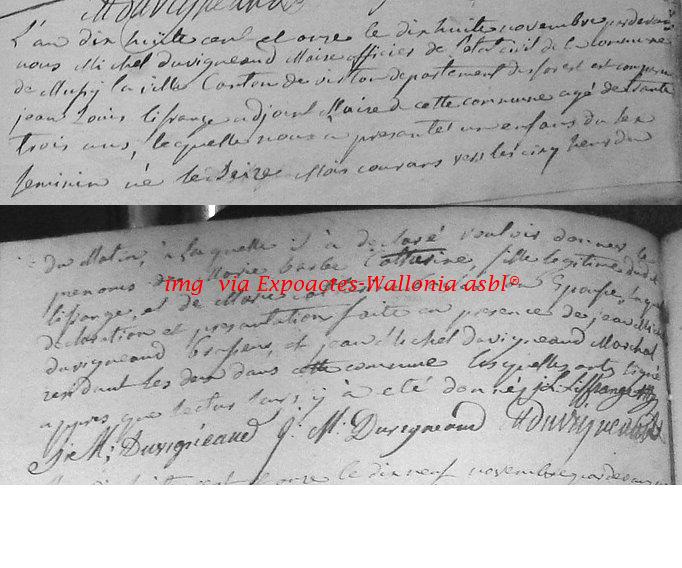 L'an dix huitte cent et onze le dix huite novembre pardevant
nous Michel duvigneaud Maire officier de l'etat civil de la commune
de Mussy la ville Canton de virton departement des forest est comparu
jean Louis Lifrange adjoint Maire de cette commune agé de
trois ans, lequelle nous a presentés un enfans du sex
feminin née le Seize Mois courans vers les cinq heurs du
du Matin, à laquelle il à declaré vouloir donner les
prenoms de Marie barbe Catterine, fille legitime dudit
lifrange, et de Marie son Epouse, laquelle
declaration et presentation faitte en presence de jean Michel
duvigneaud brasseur, et jean Michel duvigneaud Marchal
residant les deux dans cette commune lesquelles onts signé
appres que lecture leurs y à eté donnés jL Liffrange
J: M: Duvigneaud J: M: Duvigneaud MDuvigneaud
img via Expoactes-Wallonia asbl©
onze le dix neuf novembre pardevant nous